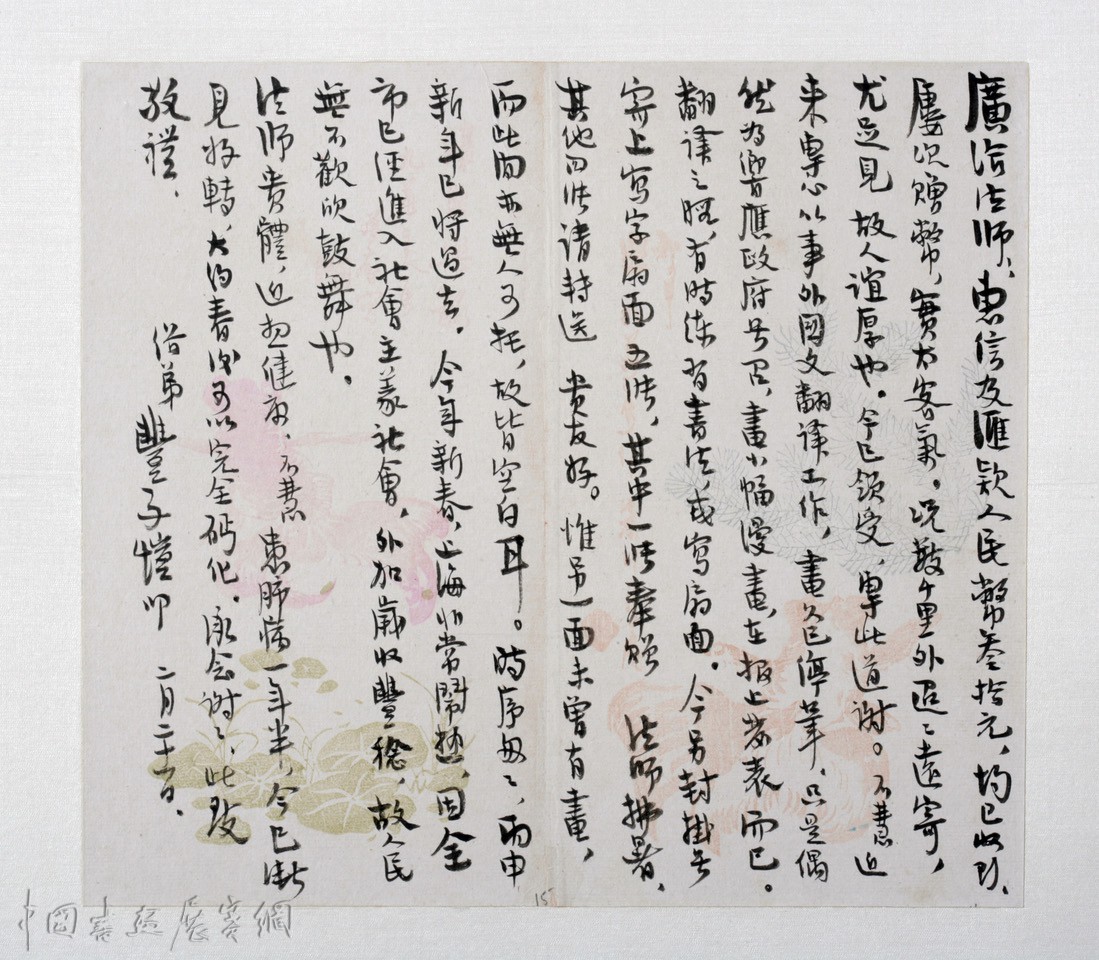 廣洽法師：惠信及匯款人民幣叁拾元，均已收到，
屢次贈幣，實太客氣。況數千里外迢迢遠寄，
尤足見　故人誼厚也。今已領受，專此道謝。不慧近
来專心從事外國文翻譯工作，畫久已停筆，只是偶
然为響應政府号召，畫小幅漫畫，在报上发表而已。
翻譯之暇，有時練習書法，或寫扇面。今另封掛号
寄上寫字扇面五張，其中一張奉贈　法師拂暑，
其他四張请轉送　貴友好。惟另一面未曾有畫，
而此间亦無人可托，故皆空白耳。時序匆匆，丙申
新年已將過去。今年新春，上海非常鬧热，因全
市已經進入社會主義社會，外加歲收豐稔，故人民
無不歡欣鼓舞也。
法師貴體，近想健康。不慧患肺病一年半，今已漸
見好轉，大约春後可以完全鈣化。承念謝謝，此致
敬禮。
　　　　弟豐子愷叩　二月二十日。
15
中國書法展賽網